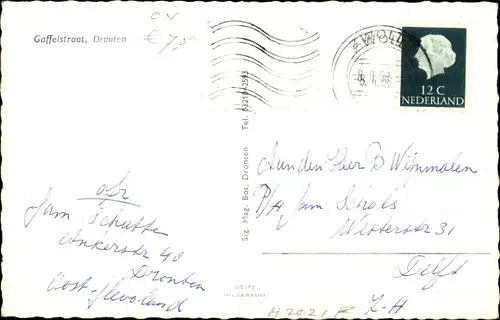 Gaffelstraat, Dronten
€ 7,5
ZWOLLE
12 C
NEDERLAND
Sig. Mag. Bos, Dronten Tel. 03210-2593
Aan den Heer D Wijnmalen
P/H fam Schols
Westerstr 31
Delft
Z-H
afz
fam Schutte
Ankerstr 48
Dronten
Oost-flevoland
HILVERSUM